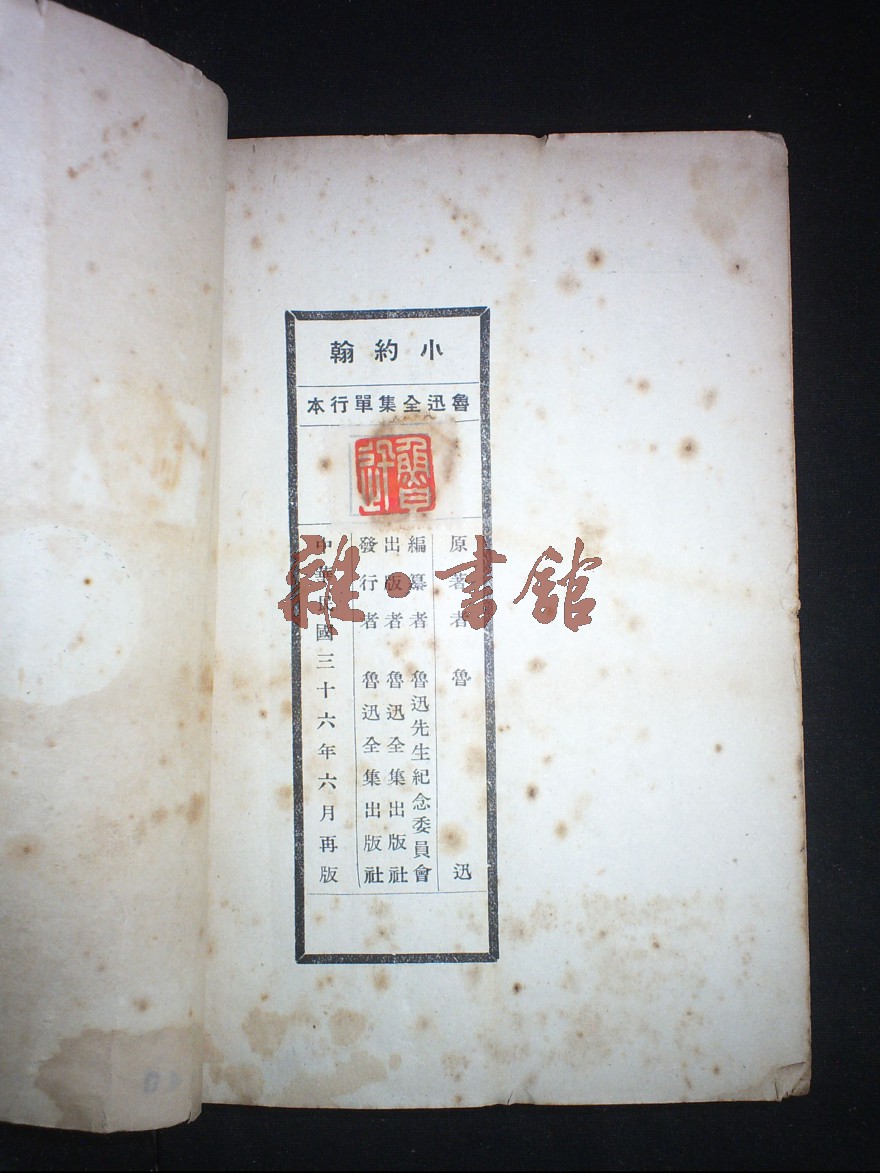 小約翰
魯迅全集單行本
原著者 魯迅
編纂者 魯迅先生紀念委員會
出版者 魯迅全集出版社
發行者 魯迅全集出版社
中華民國三十六年六月再版
雜·書館